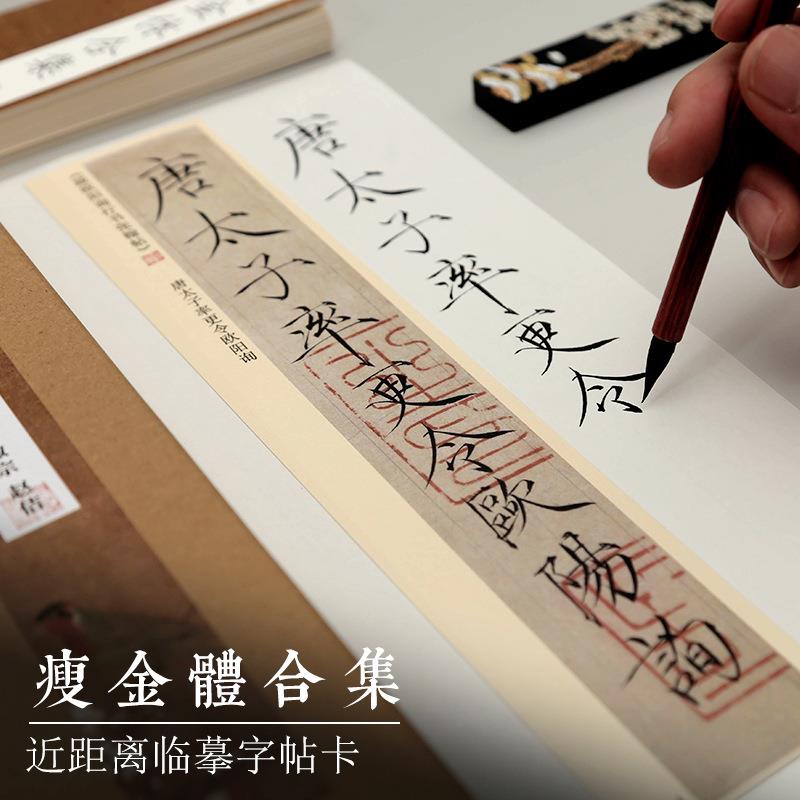 金体合集
唐太子率更令歐陽詢
唐太子率更令欧阳询
唐太子率更令
宗 赵佶
瘦金體合集
近距离临摹字帖卡